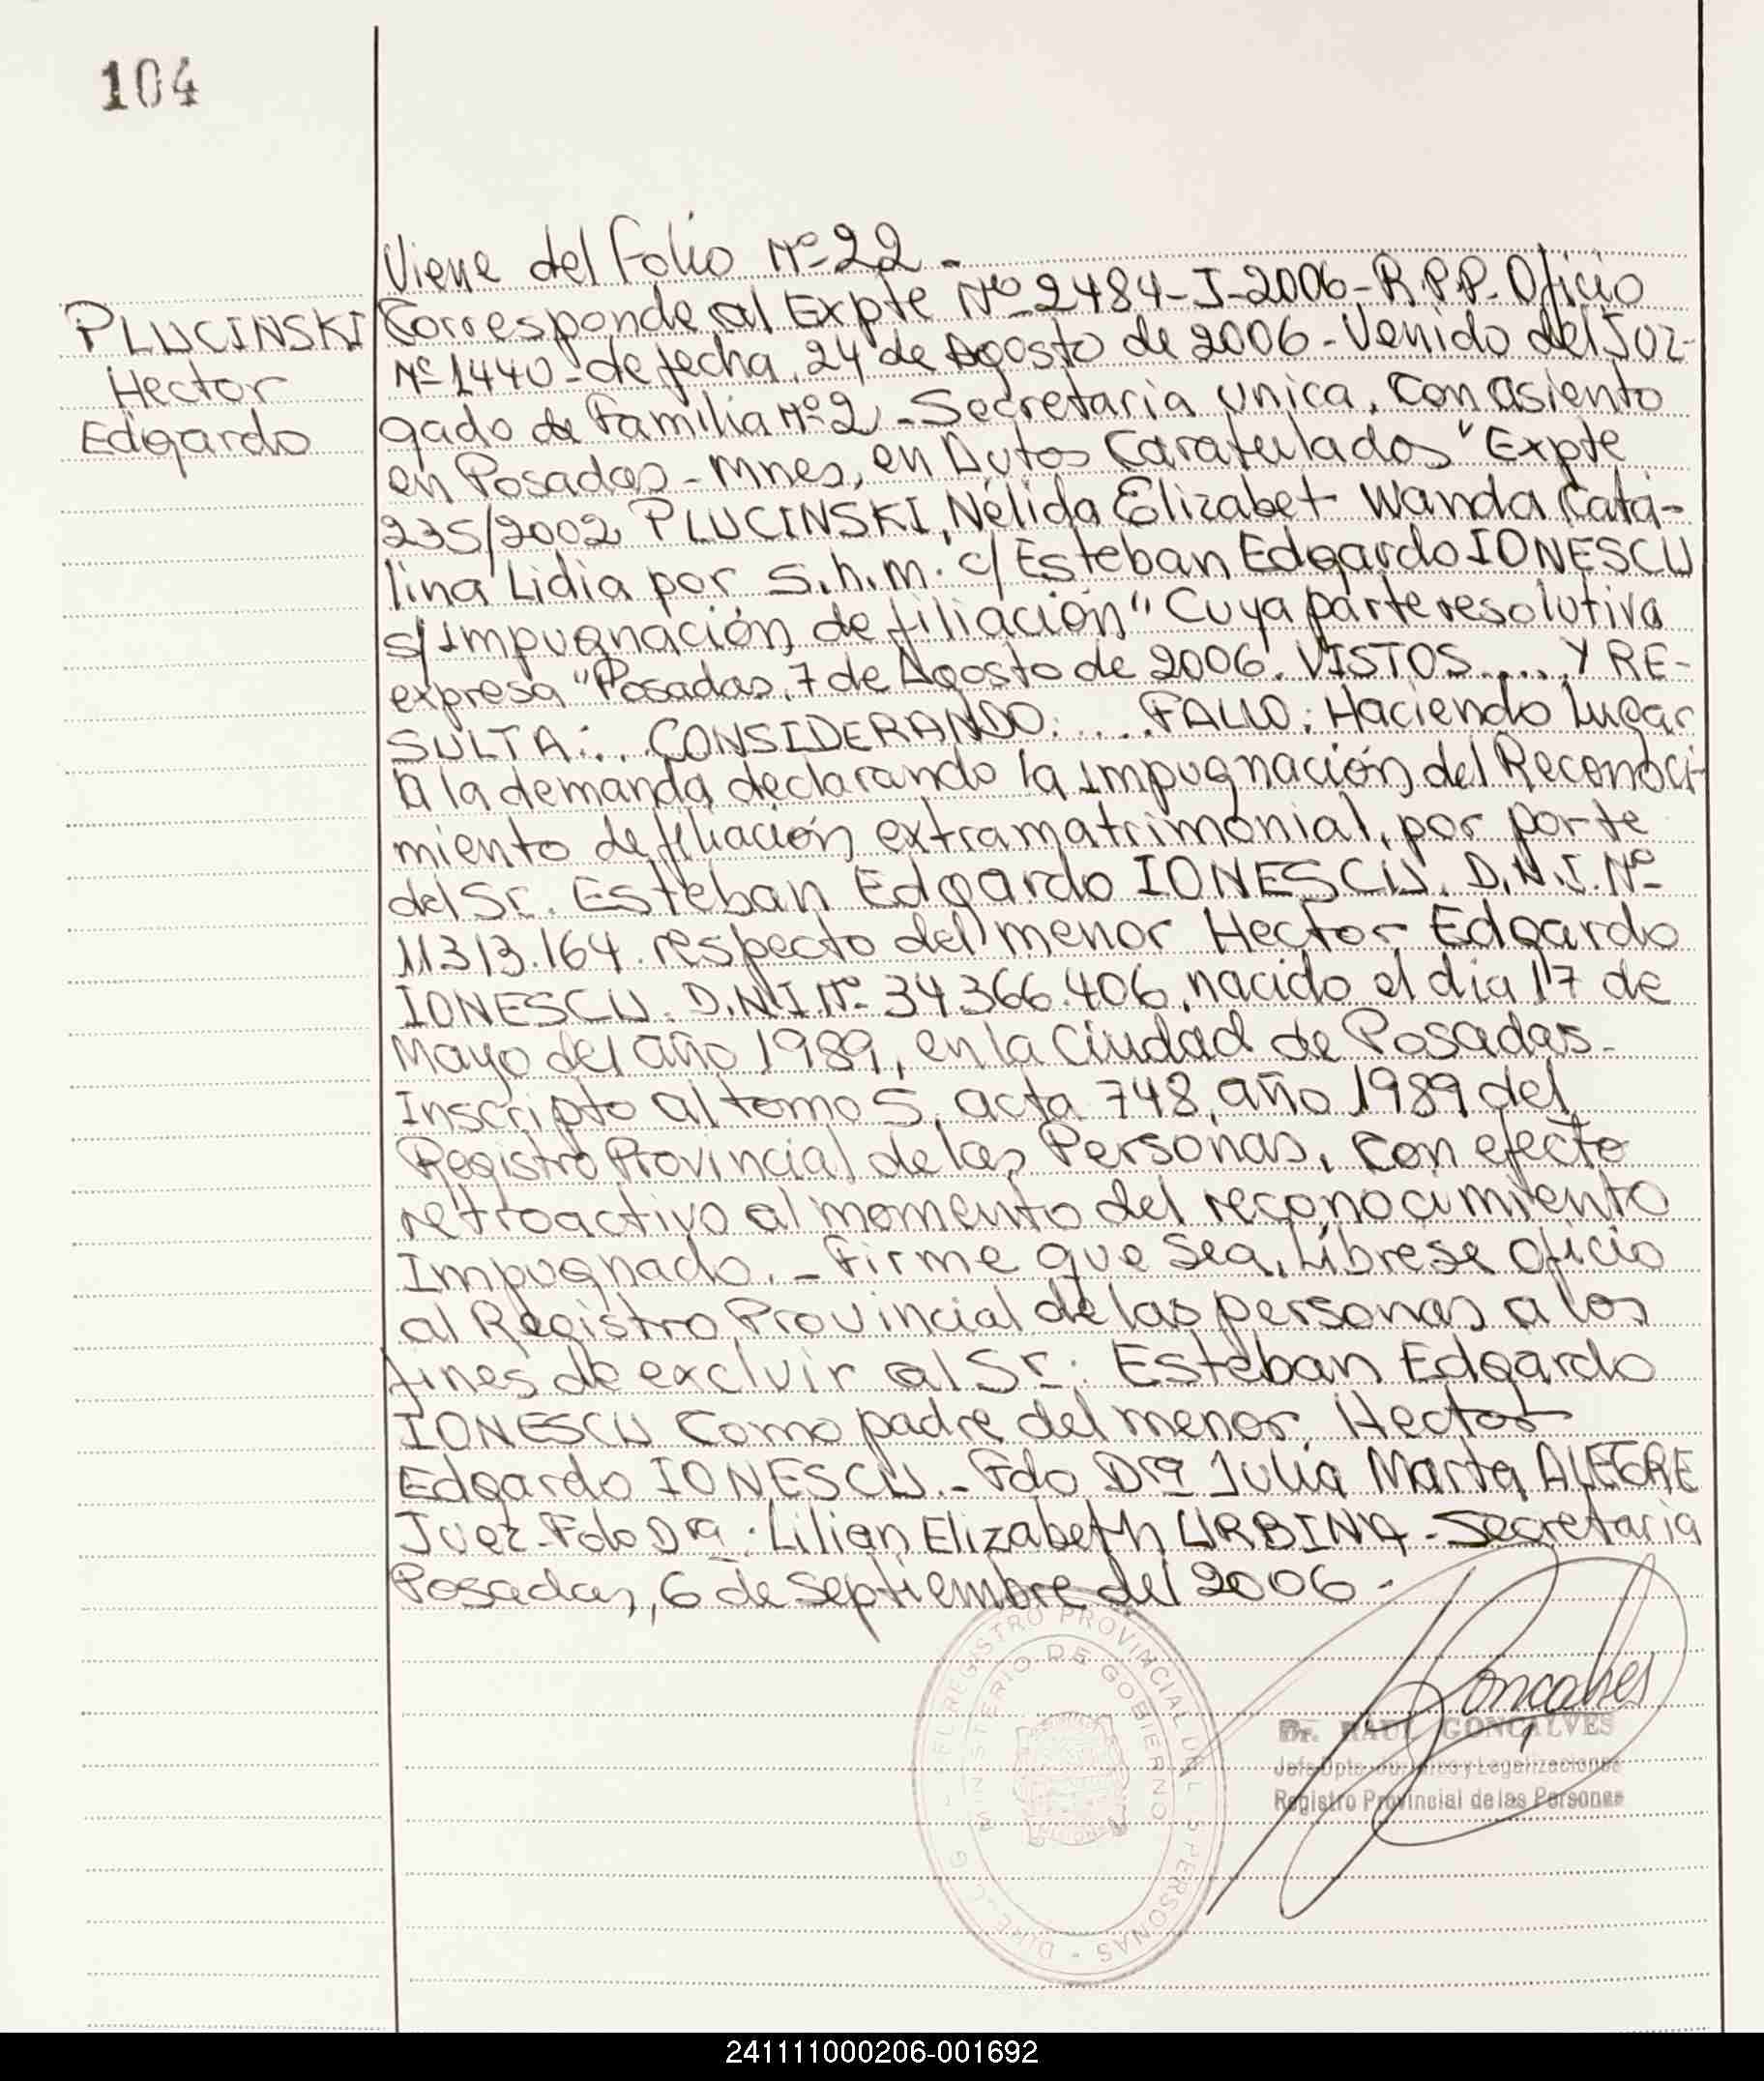 104
Viene del Folio Nº 22 -
PLUCINSKI
Hector
Edgardo
Corresponde al Expte Nº 2484-I-2006-R.P.P. Oficio
Nº 1440- de fecha. 24 de Agosto de 2006 - Venido del Juz-
gado de Familia Nº 2 - Secretaria unica, con asiento
en Posadas - Mnes, en Autos Caratulados "Expte
235/2002 PLUCINSKI, Nélida Elizabet Wanda Cata-
lina Lidia por s.h.m. c/ Esteban Edgardo IONESCU
s/ Impugnación de filiación" Cuya parte resolutiva
expresa "Posadas, 7 de Agosto de 2006. VISTOS..... Y RE-
SULTA:... CONSIDERANDO:.....FALLO: Haciendo Lugar
A la demanda declarando la impugnación del Reconoci-
miento de filiación extramatrimonial, por parte
del Sr. Esteban Edgardo IONESCU. D.N.I. Nº
11.313.164. respecto del menor Hector Edgardo
IONESCU. D.N.I. Nº 34.366.406, nacido el dia 17 de
Mayo del año 1989, en la Ciudad de Posadas-
Inscripto al tomo 5, acta 748, año 1989 del
Registro Provincial de las Personas, con efecto
retroactivo al momento del reconocimiento
Impugnado. - Firme que sea, Líbrese oficio
al Registro Provincial de las personas a los
fines de excluir al Sr. Esteban Edgardo
IONESCU como padre del menor Hector
Edgardo IONESCU. - Fdo Dra Julia Marta ALEGRE
Juez - Fdo Dra. Lilian Elizabeth URBINA - Secretaria
Posadas, 6 de Septiembre del 2006 -
REGISTRO PROVINCIAL DE LAS PERSONAS
MINISTERIO DE GOBIERNO
Goncalves
Dr. RAUL GONCALVES
Jefe Dpto. Jurídico y Legalizaciones
Registro Provincial de las Personas
241111000206-001692